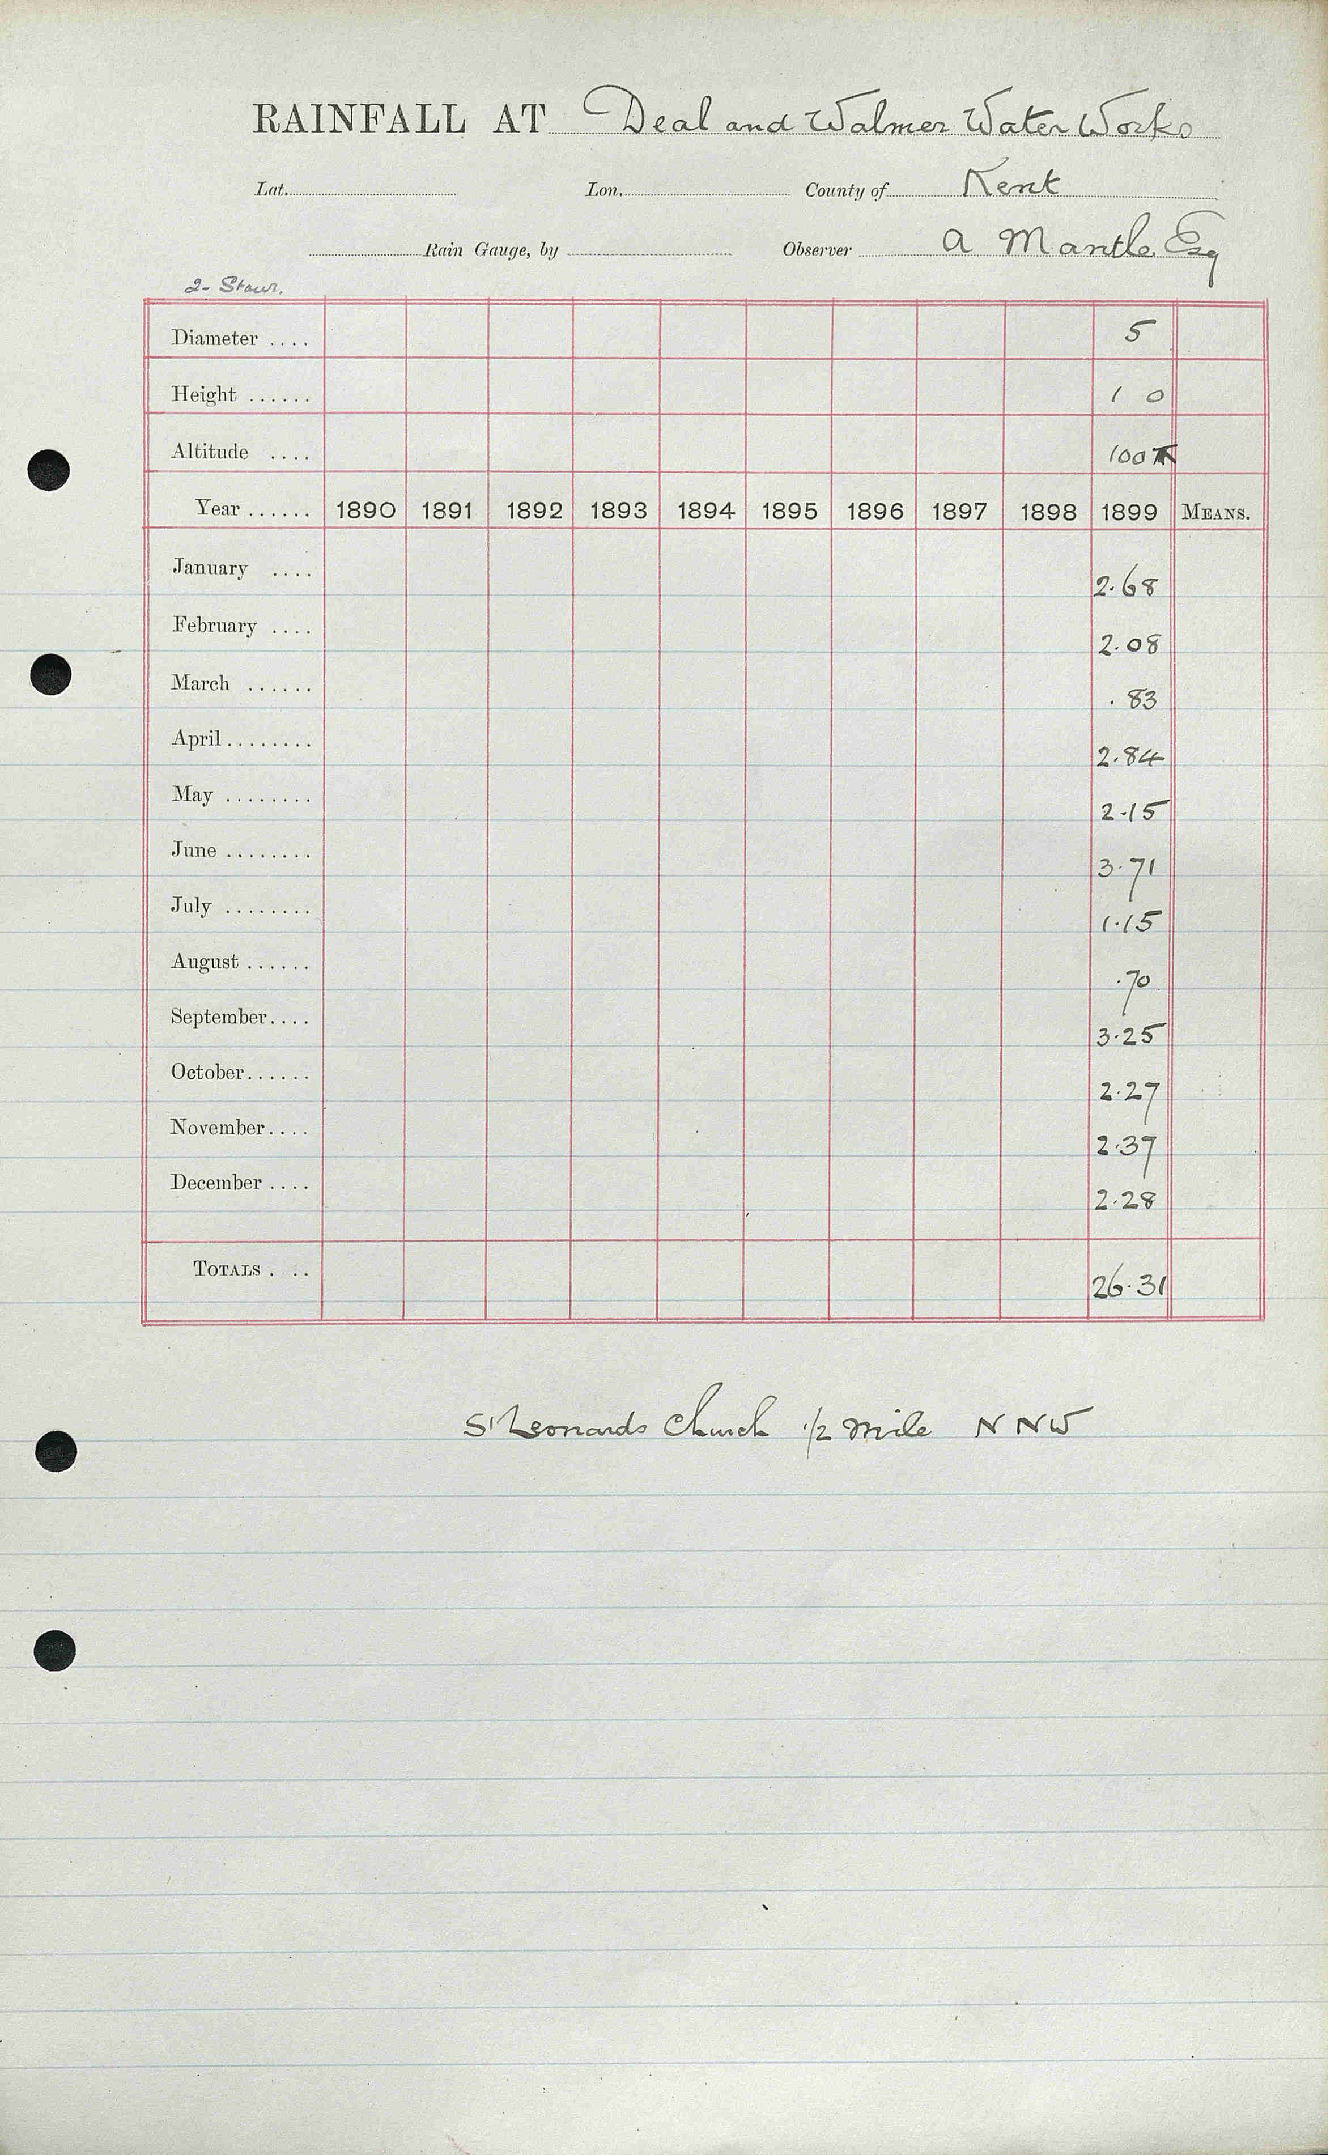 RAINFALL AT Deal and Walmer Water Works
Lat. Lon. County of Kent
Rain Gauge, by Observer A Mantle Esq
2- Stour.
Diameter .... 5
Height ...... 1 0
Altitude .... 100
Year ...... 1890 1891 1892 1893 1894 1895 1896 1897 1898 1899 MEANS.
January .... 2.68
February .... 2.08
March ...... .83
April ........ 2.84
May ........ 2.15
June ........ 3.71
July ........ 1.15
August ...... .70
September.... 3.25
October...... 2.27
November.... 2.37
December .... 2.28
TOTALS . .. 26.31
St Leonards Church 1/2 mile N NW